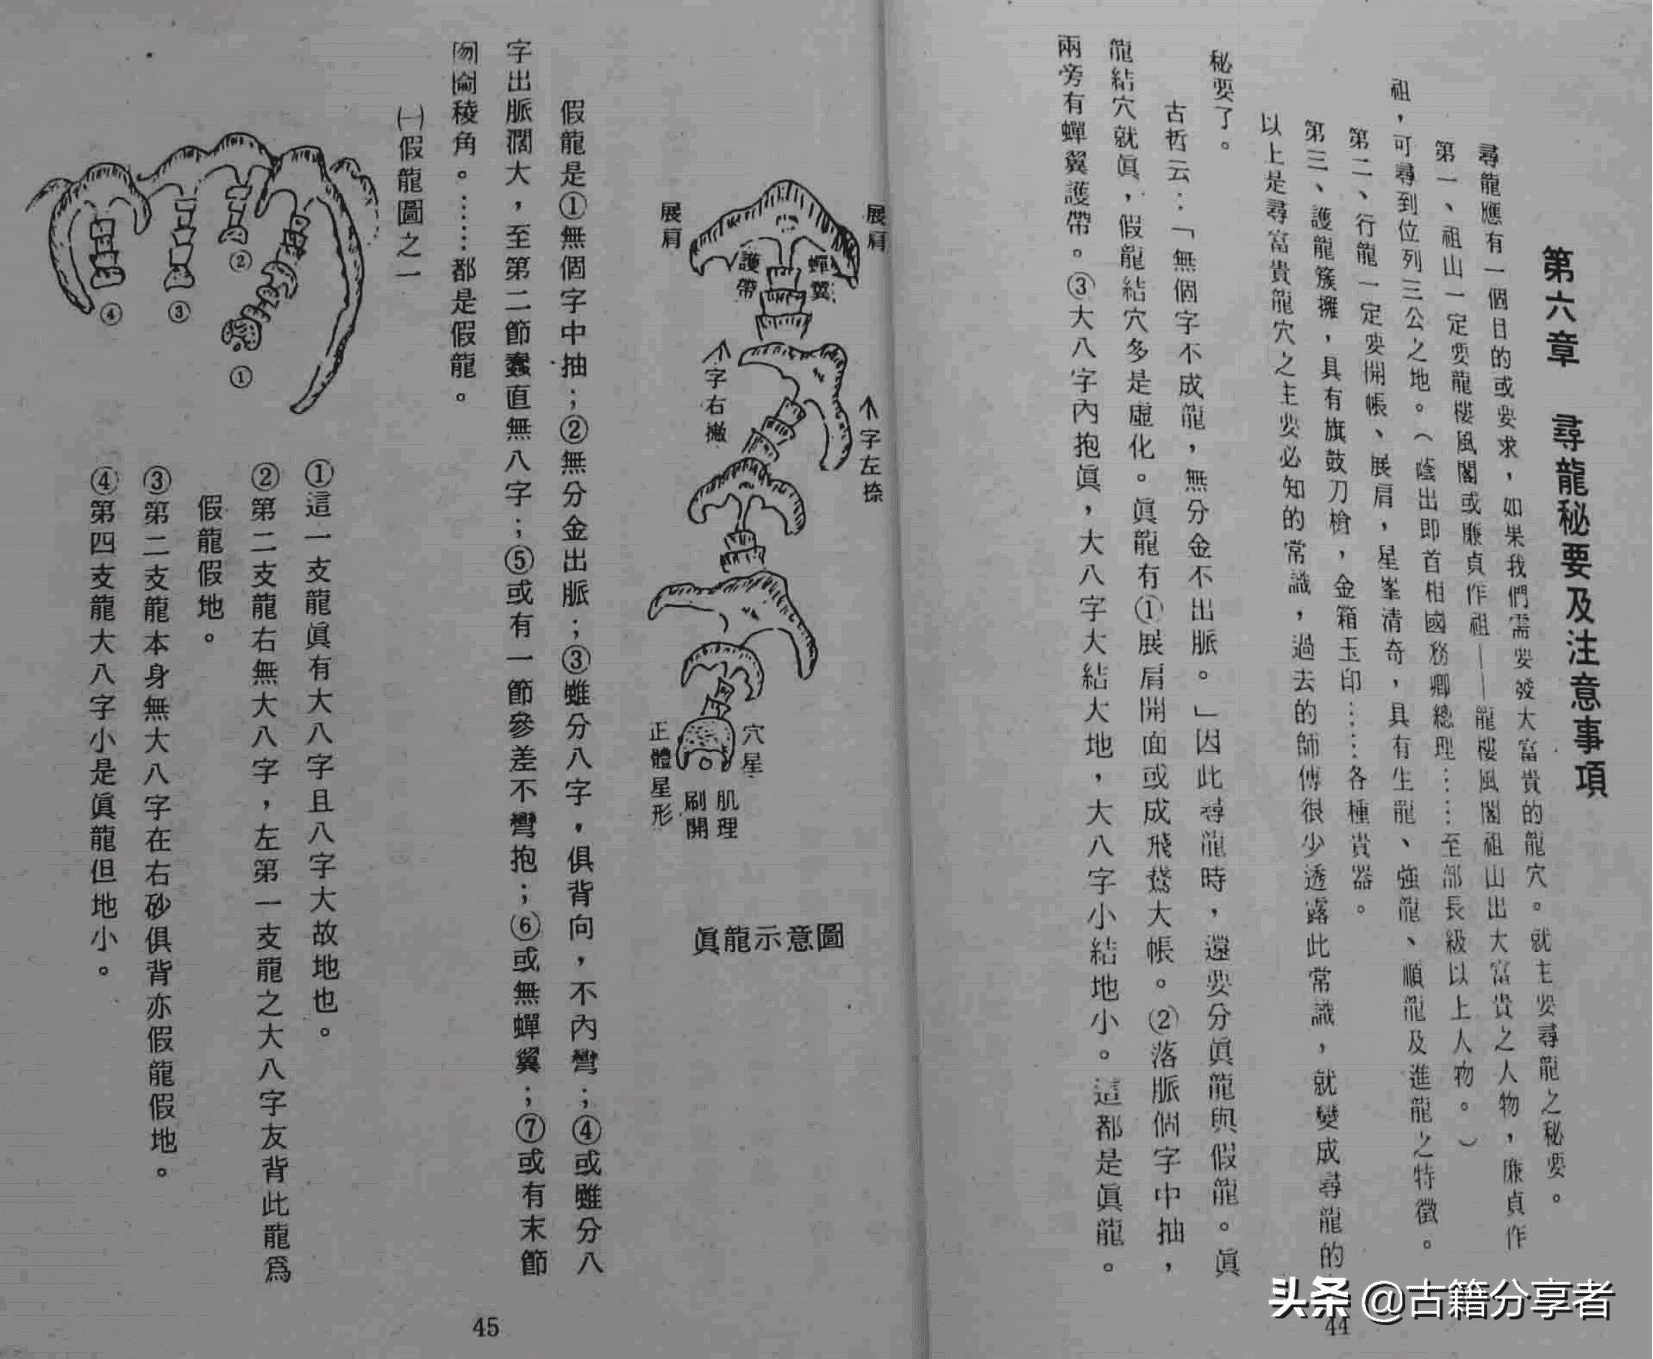 第六章　尋龍秘要及注意事項
尋龍應有一個目的或要求，如果我們需要發大富貴的龍穴。就主要尋龍之秘要。
第一、祖山一定要龍樓風閣或廉貞作祖——龍樓風閣祖山出大富貴之人物，廉貞作
祖，可尋到位列三公之地。（蔭出即首相國務卿總理……至部長級以上人物。）
第二、行龍一定要開帳、展肩，星峯清奇，具有生龍、強龍、順龍及進龍之特徵。
第三、護龍簇擁，具有旗鼓刀槍，金箱玉印……各種貴器。
以上是尋富貴龍穴之主要必知的常識，過去的師傅很少透露此常識，就變成尋龍的
秘要了。
古哲云：「無個字不成龍，無分金不出脈。」因此尋龍時，還要分眞龍與假龍。眞
龍結穴就眞，假龍結穴多是虛化。眞龍有①展肩開面或成飛鵞大帳。②落脈個字中抽，
兩旁有蟬翼護帶。③大八字內抱眞，大八字大結大地，大八字小結地小。這都是眞龍。
44
展肩
展肩
蟬翼
護帶
个字左捺
个字右撇
穴星
正體星形
肌理
刷開
眞龍示意圖
假龍是①無個字中抽；②無分金出脈；③雖分八字，俱背向，不內彎；④或雖分八
字出脈濶大，至第二節蠢直無八字；⑤或有一節參差不彎抱；⑥或無蟬翼；⑦或有末節
稜角。……都是假龍。
㈠假龍圖之一
①
②
③
④
①這一支龍眞有大八字且八字大故地也。
②第二支龍右無大八字，左第一支龍之大八字友背此龍爲
假龍假地。
③第二支龍本身無大八字在右砂俱背亦假龍假地。
④第四支龍大八字小是眞龍但地小。
45
头条 @古籍分享者